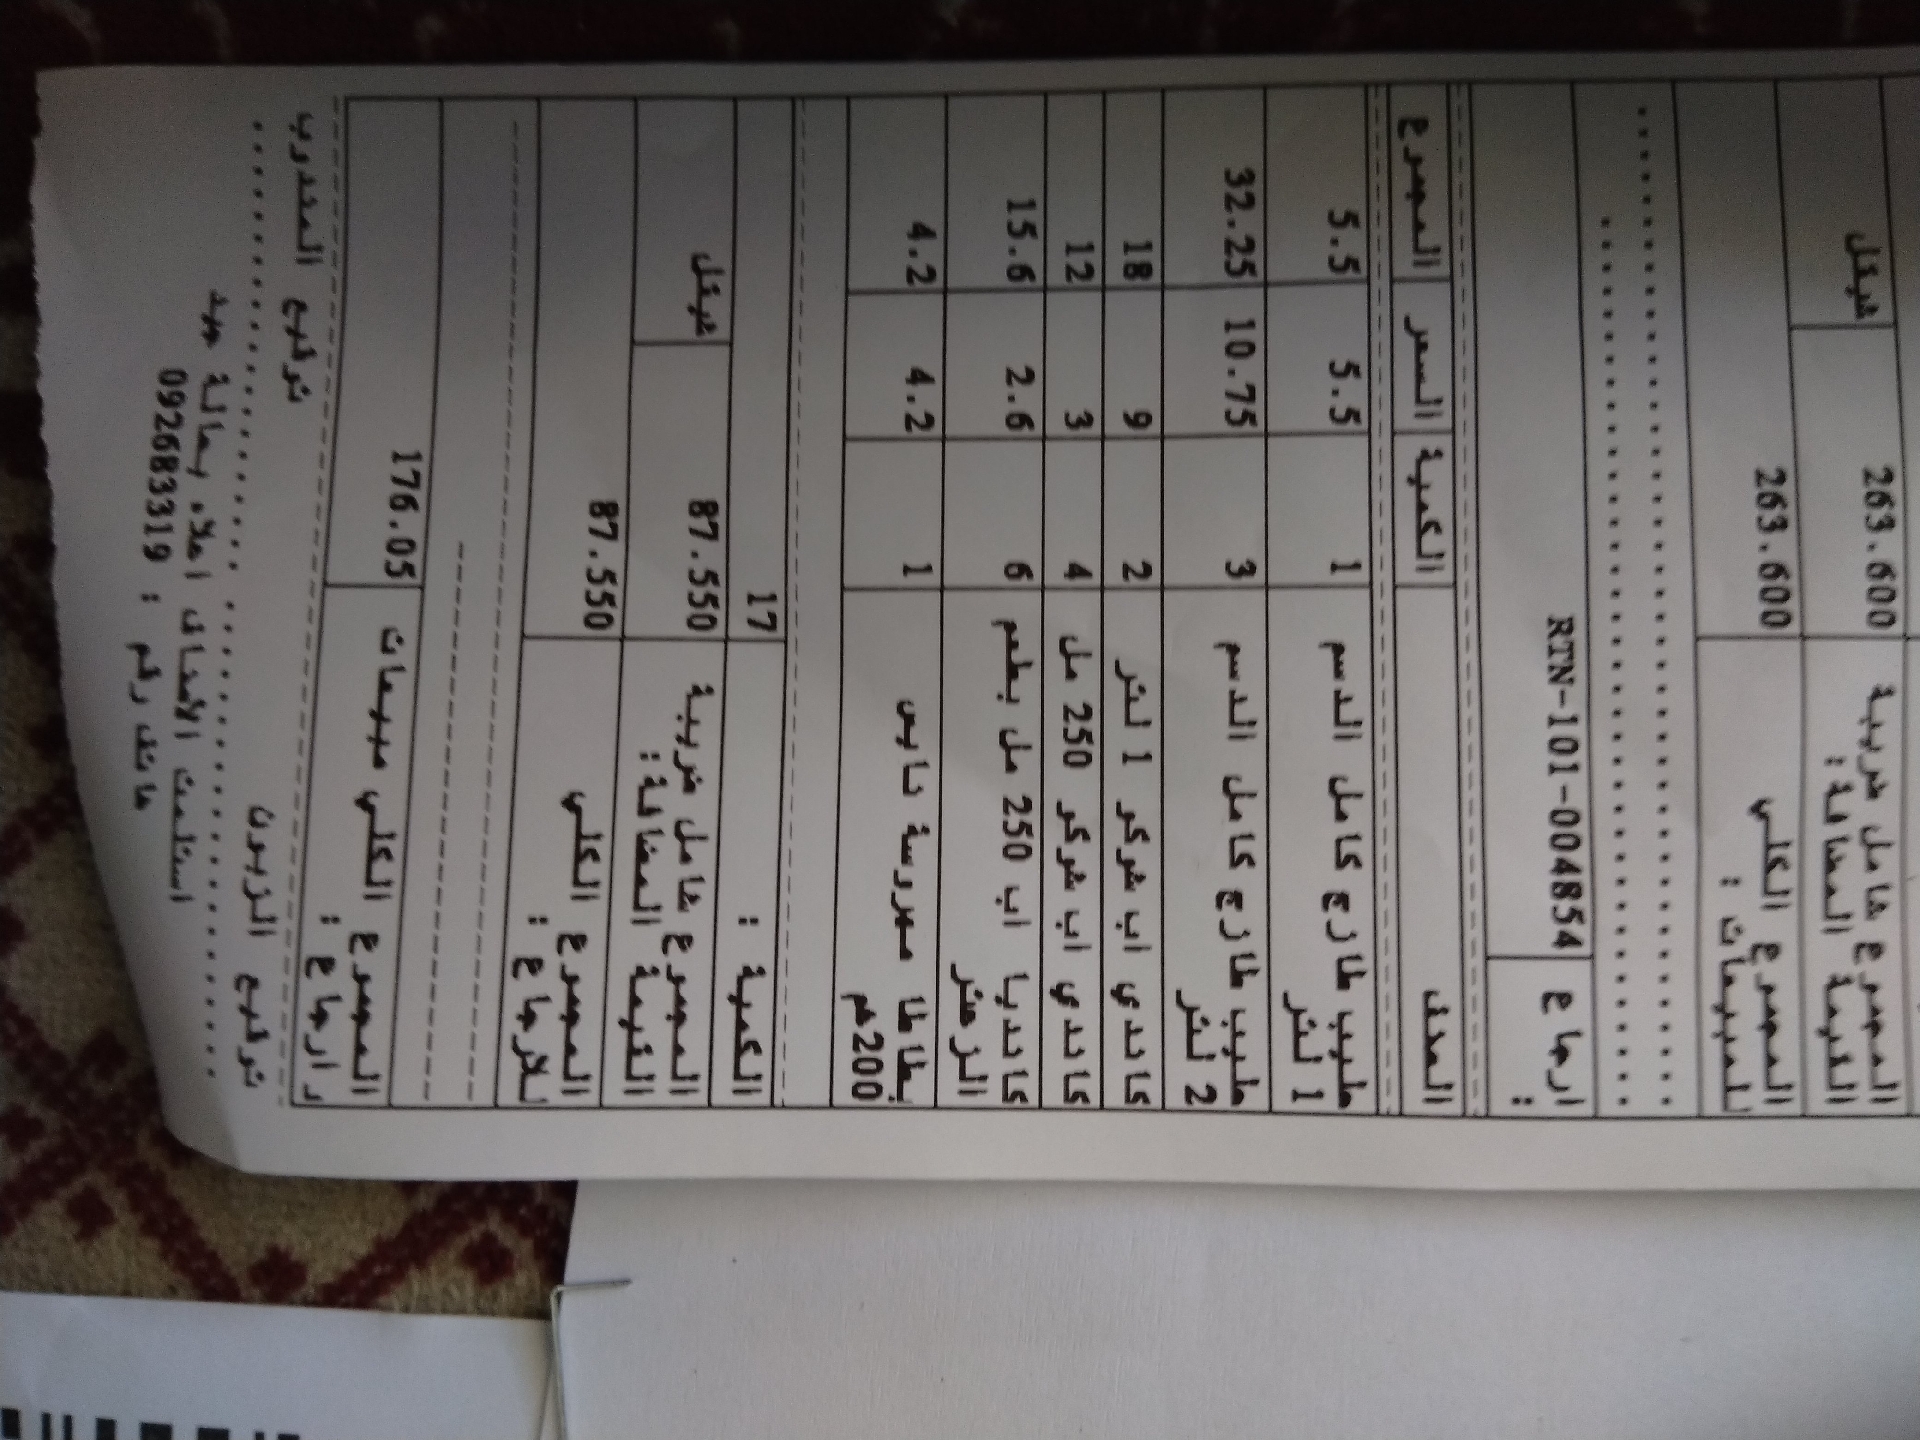 المجموع شامل ضريبة 263.600 شيقل
القيمة المضافة:
المجموع الكلي 263.600
للمبيعات :
ارجاع RTN-101-004854
:
الصنف الكمية السعر المجموع
حليب طازج كامل الدسم 1 5.5 5.5
1 لتر
حليب طازج كامل الدسم 3 10.75 32.25
2 لتر
كاندي اب شوكو 1 لتر 2 9 18
كاندي اب شوكو 250 مل 4 3 12
كانديا اب 250 مل بطعم 6 2.6 15.6
بطاطا مهروسة نايس 1 4.2 4.2
200غم
الكمية : 17
المجموع شامل ضريبة 87.550 شيقل
القيمة المضافة:
المجموع الكلي 87.550
للارجاع :
المجموع الكلي مبيعات 176.05
و ارجاع :
توقيع الزبون توقيع المندوب
استلمت الأصناف اعلاه بحالة جيد
هاتف رقم : 092683319